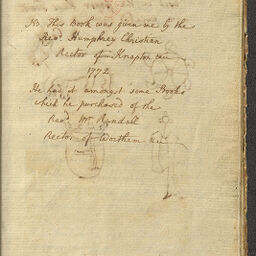 NB This Book was given me by the
Revd Humphrey Christien
Rector of Knapton
1772
He had it amongst some Books
which he purchased of the
Revd Mr Randall
Rector of